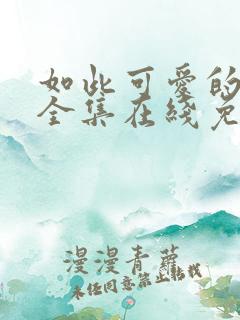 如此可爱的
全集在线免
漫漫青萝
未经同意禁止转载